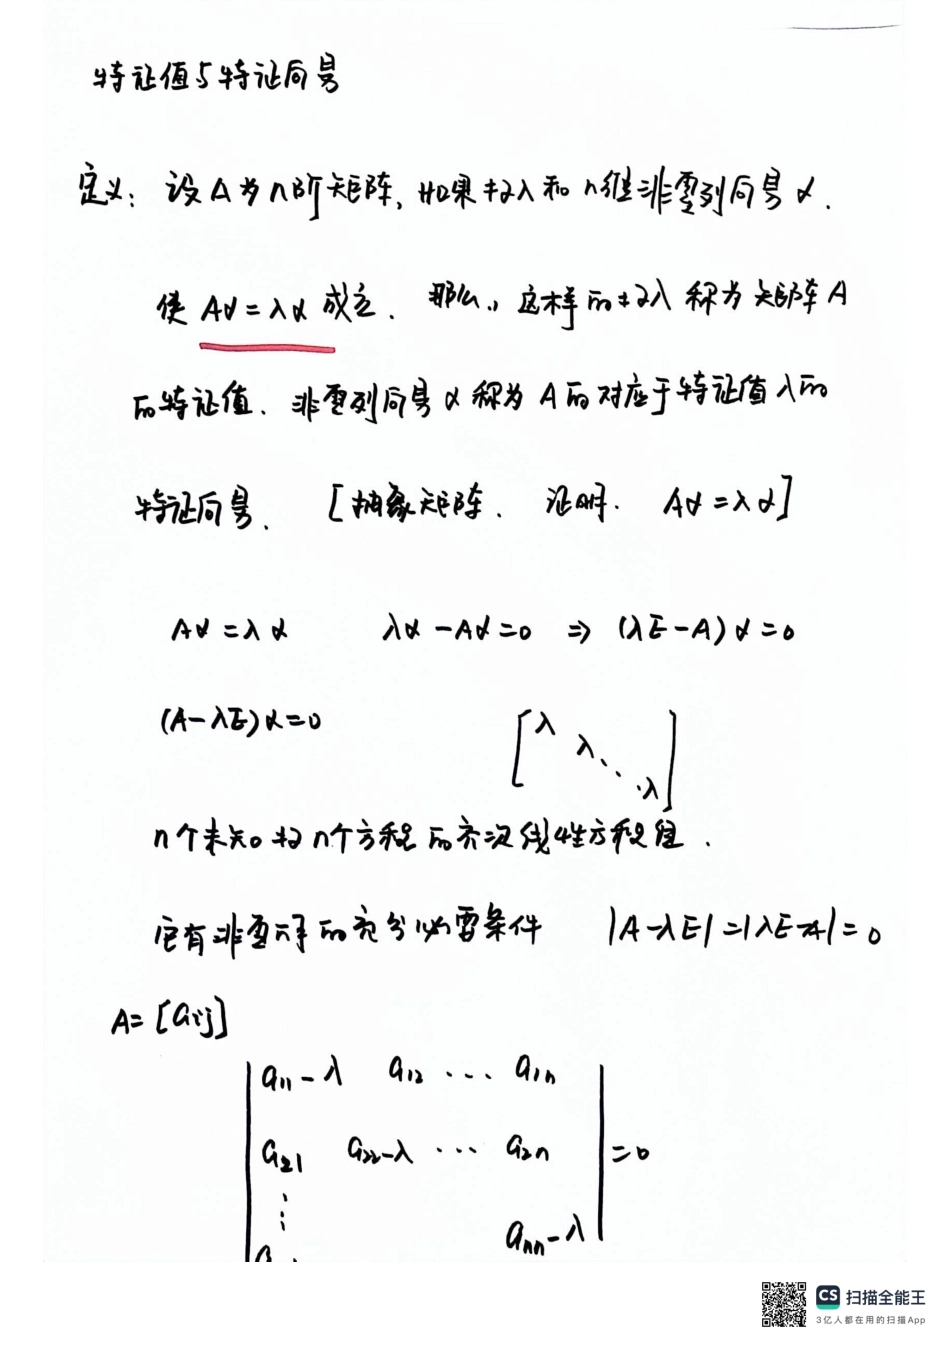 特征值与特征向量
定义：设A为n阶矩阵，如果数λ和n维非零列向量α.
使 Aα=λα 成立. 那么，这样的数λ称为矩阵A
的特征值. 非零列向量α称为A的对应于特征值λ的
特征向量. [抽象矩阵. 证明. Aα=λα]
Aα=λα λα-Aα=0 ⇒ (λE-A)α=0
(A-λE)α=0
[λ λ ⋱ λ]
n个未知数n个方程的齐次线性方程组.
它有非零解的充分必要条件 |A-λE|=|λE-A|=0
A=[aij]
a11-λ a12 ... a1n
a21 a22-λ ... a2n =0
⋮
ann-λ
CS 扫描全能王
3亿人都在用的扫描App